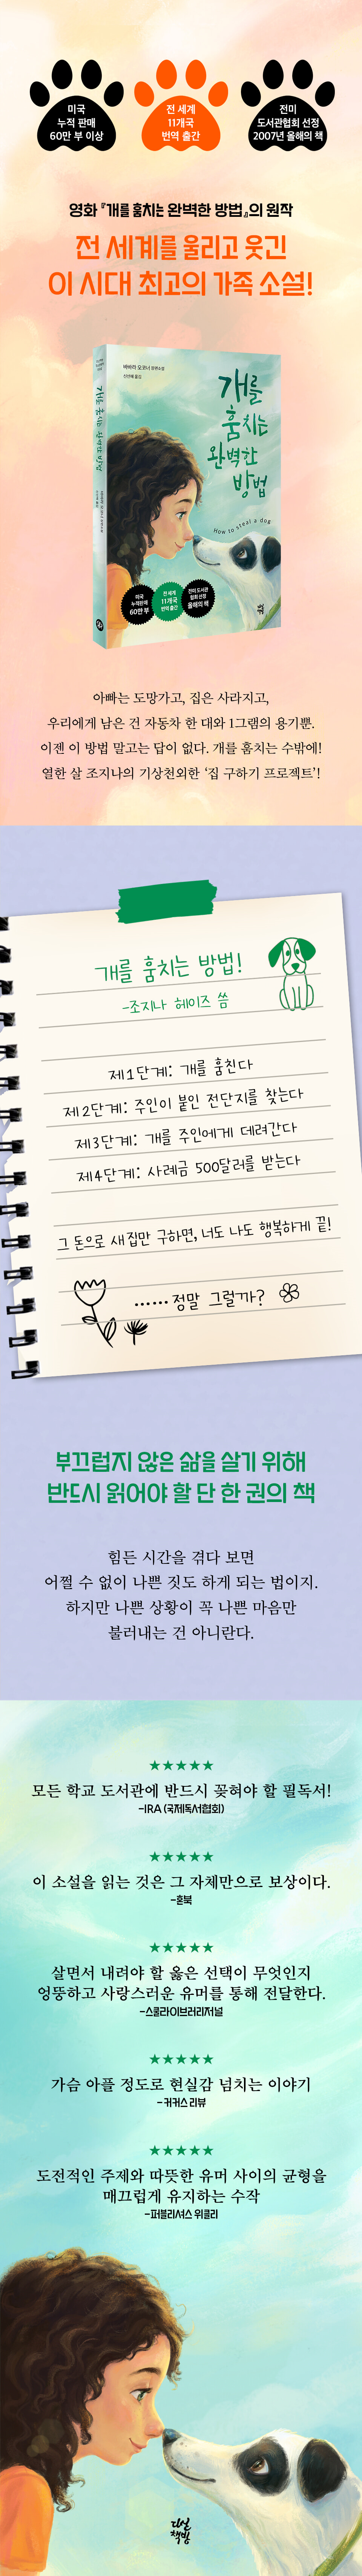 미국
누적 판매
60만 부 이상
전 세계
11개국
번역 출간
전미
도서관협회 선정
2007년 올해의 책
영화 『개를 훔치는 완벽한 방법』의 원작
전 세계를 울리고 웃긴
이 시대 최고의 가족 소설!
바바라 오코너 장편소설
신선해 옮김
개를
훔치는
완벽한
방법
How to steal a dog
개를 훔치는 완벽한 방법
미국
누적판매
60만 부
전 세계
11개국
번역 출간
전미 도서관
협회 선정
올해의 책
아빠는 도망가고, 집은 사라지고,
우리에게 남은 건 자동차 한 대와 1그램의 용기뿐.
이젠 이 방법 말고는 답이 없다. 개를 훔치는 수밖에!
열한 살 조지나의 기상천외한 ‘집 구하기 프로젝트’!
개를 훔치는 방법!
-조지나 헤이즈 씀
제1단계: 개를 훔친다
제2단계: 주인이 붙인 전단지를 찾는다
제3단계: 개를 주인에게 데려간다
제4단계: 사례금 500달러를 받는다
그 돈으로 새 집만 구하면, 너도 나도 행복하게 끝!
······정말 그럴까?
부끄럽지 않은 삶을 살기 위해
반드시 읽어야 할 단 한 권의 책
힘든 시간을 겪다 보면
어쩔 수 없이 나쁜 짓도 하게 되는 법이지.
하지만 나쁜 상황이 꼭 나쁜 마음만
불러내는 건 아니란다.
★★★★★
모든 학교 도서관에 반드시 꽂혀야 할 필독서!
-IRA (국제독서협회)
★★★★★
이 소설을 읽는 것은 그 자체만으로 보상이다.
-혼북
★★★★★
살면서 내려야 할 옳은 선택이 무엇인지
엉뚱하고 사랑스러운 유머를 통해 전달한다.
-스쿨라이브러리저널
★★★★★
가슴 아플 정도로 현실감 넘치는 이야기
- 커커스 리뷰
★★★★★
도전적인 주제와 따뜻한 유머 사이의 균형을
매끄럽게 유지하는 수작
-퍼블리셔스 위클리
다실
책방